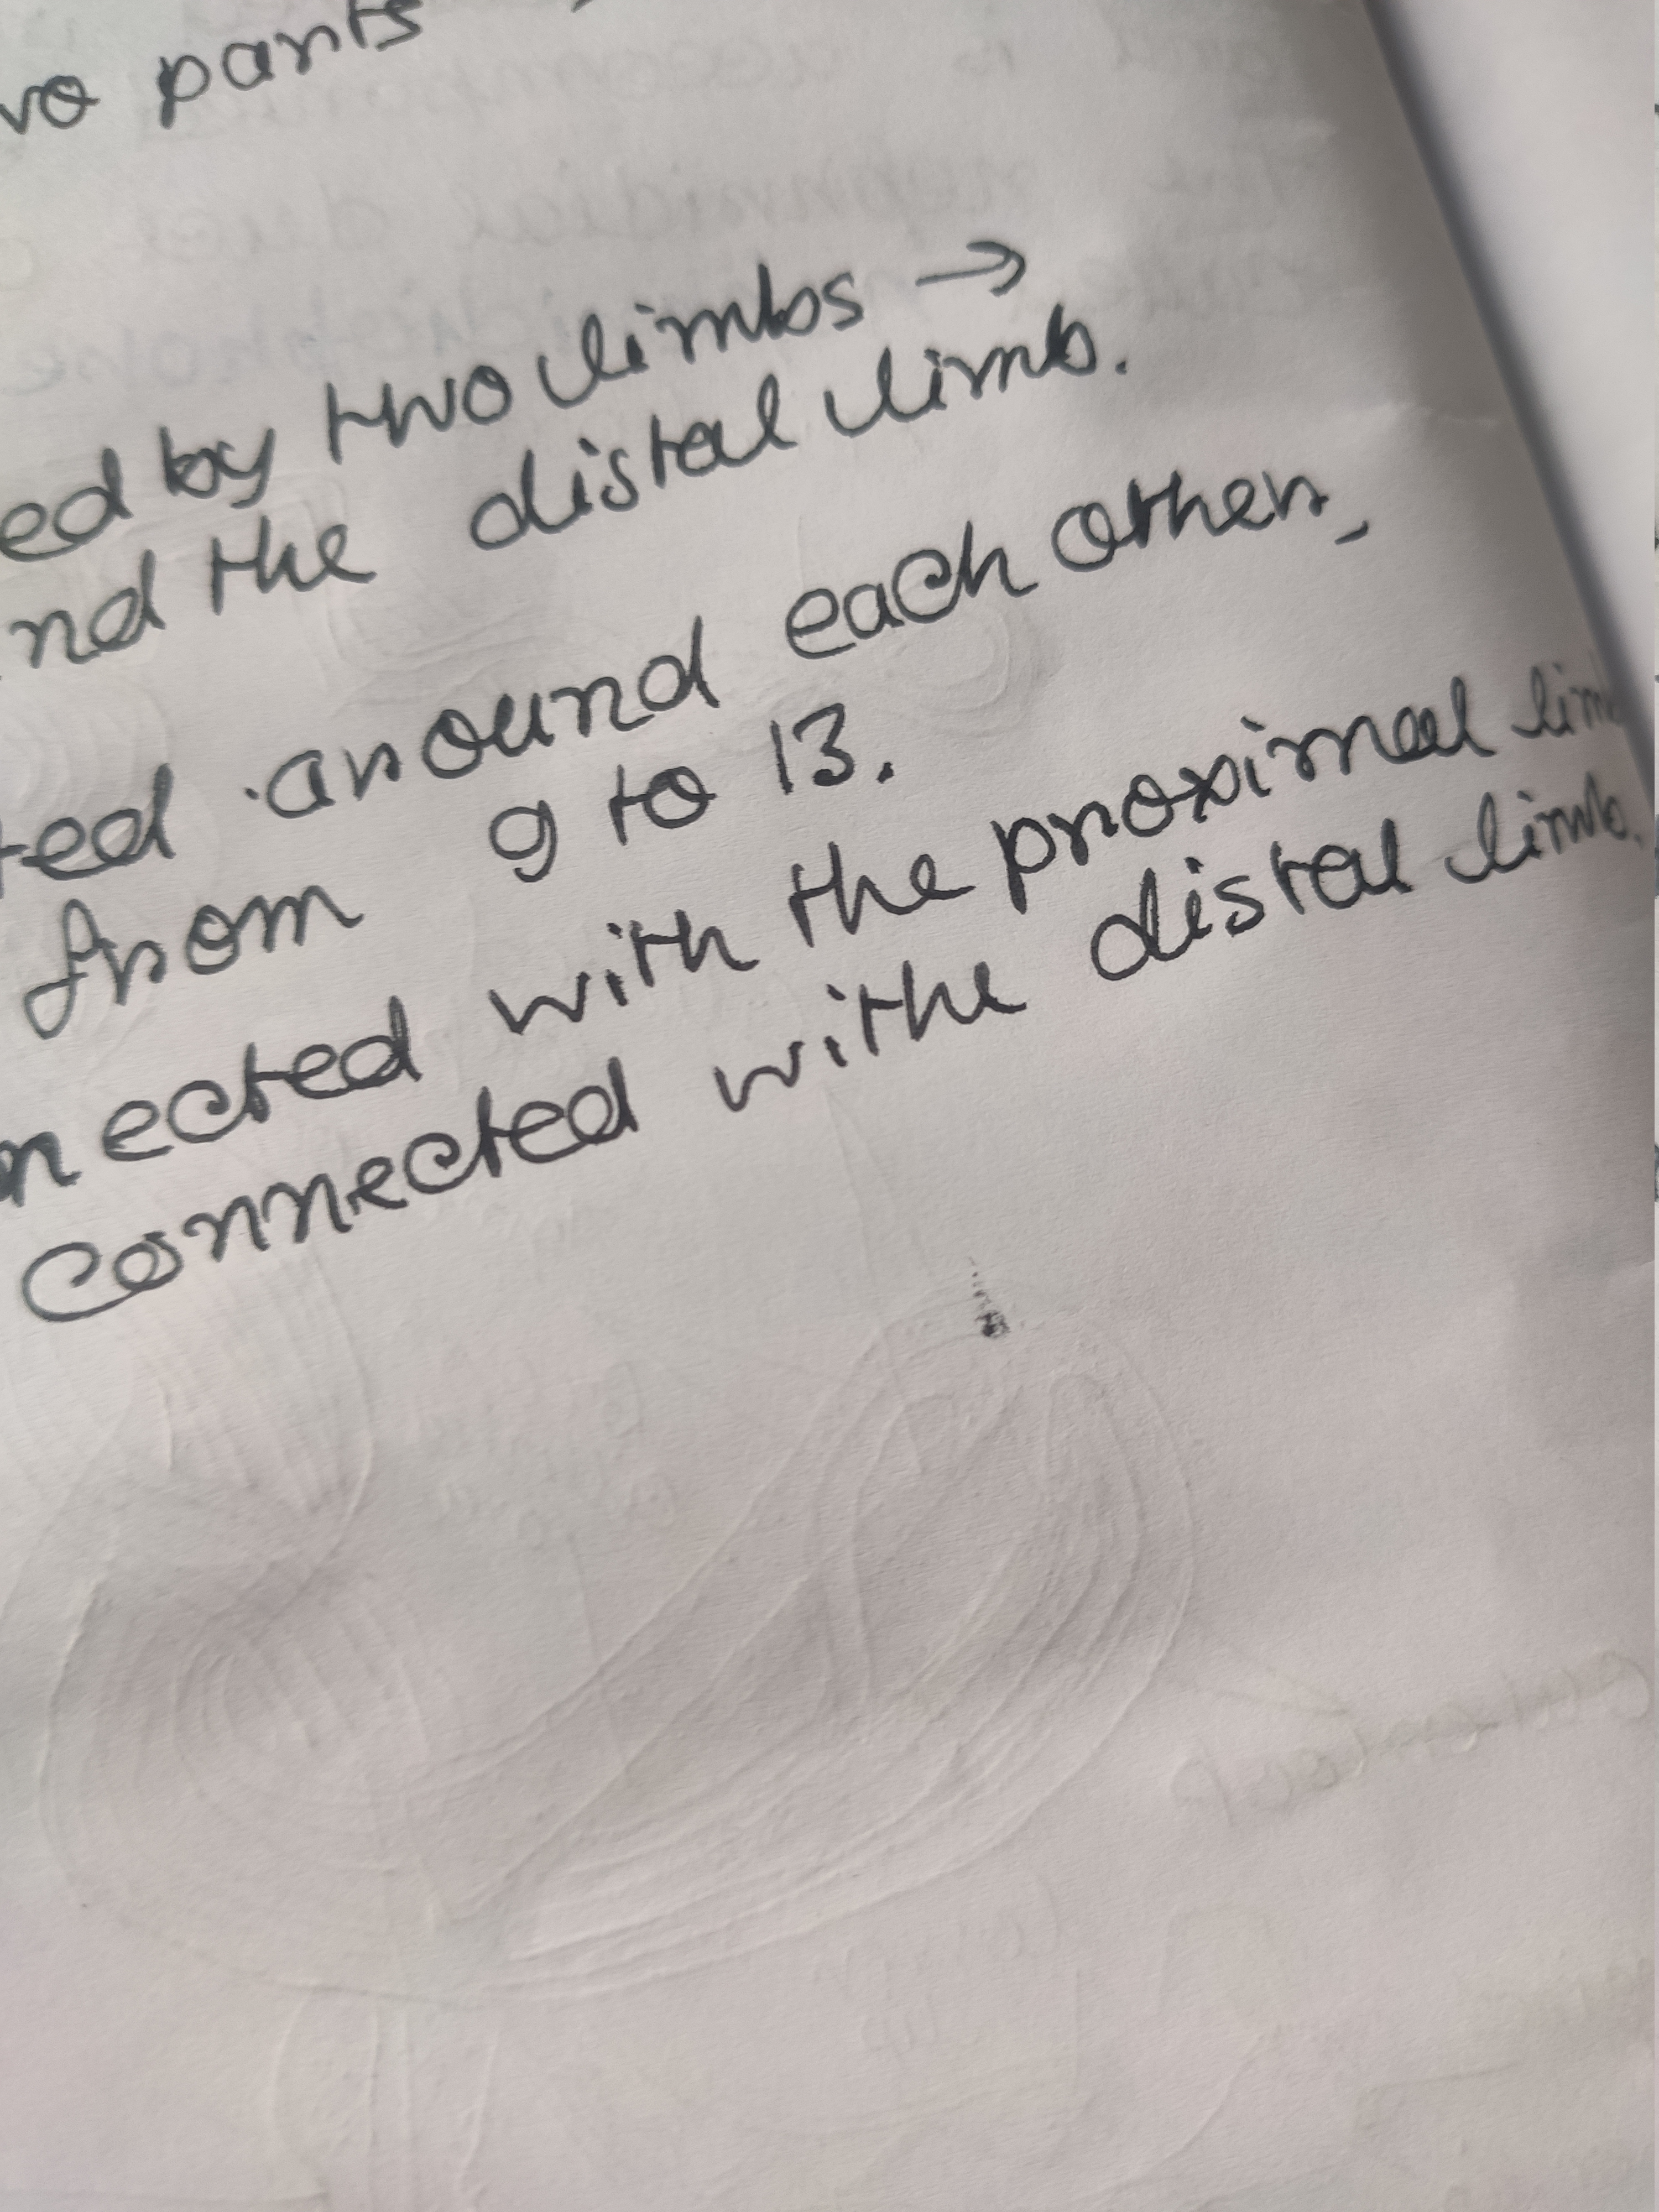 wo parts
ed by two limbs →
nd the distal limb.
ted around each other,
from 9 to 13.
nected with the proximal lim
connected withe distal limb.